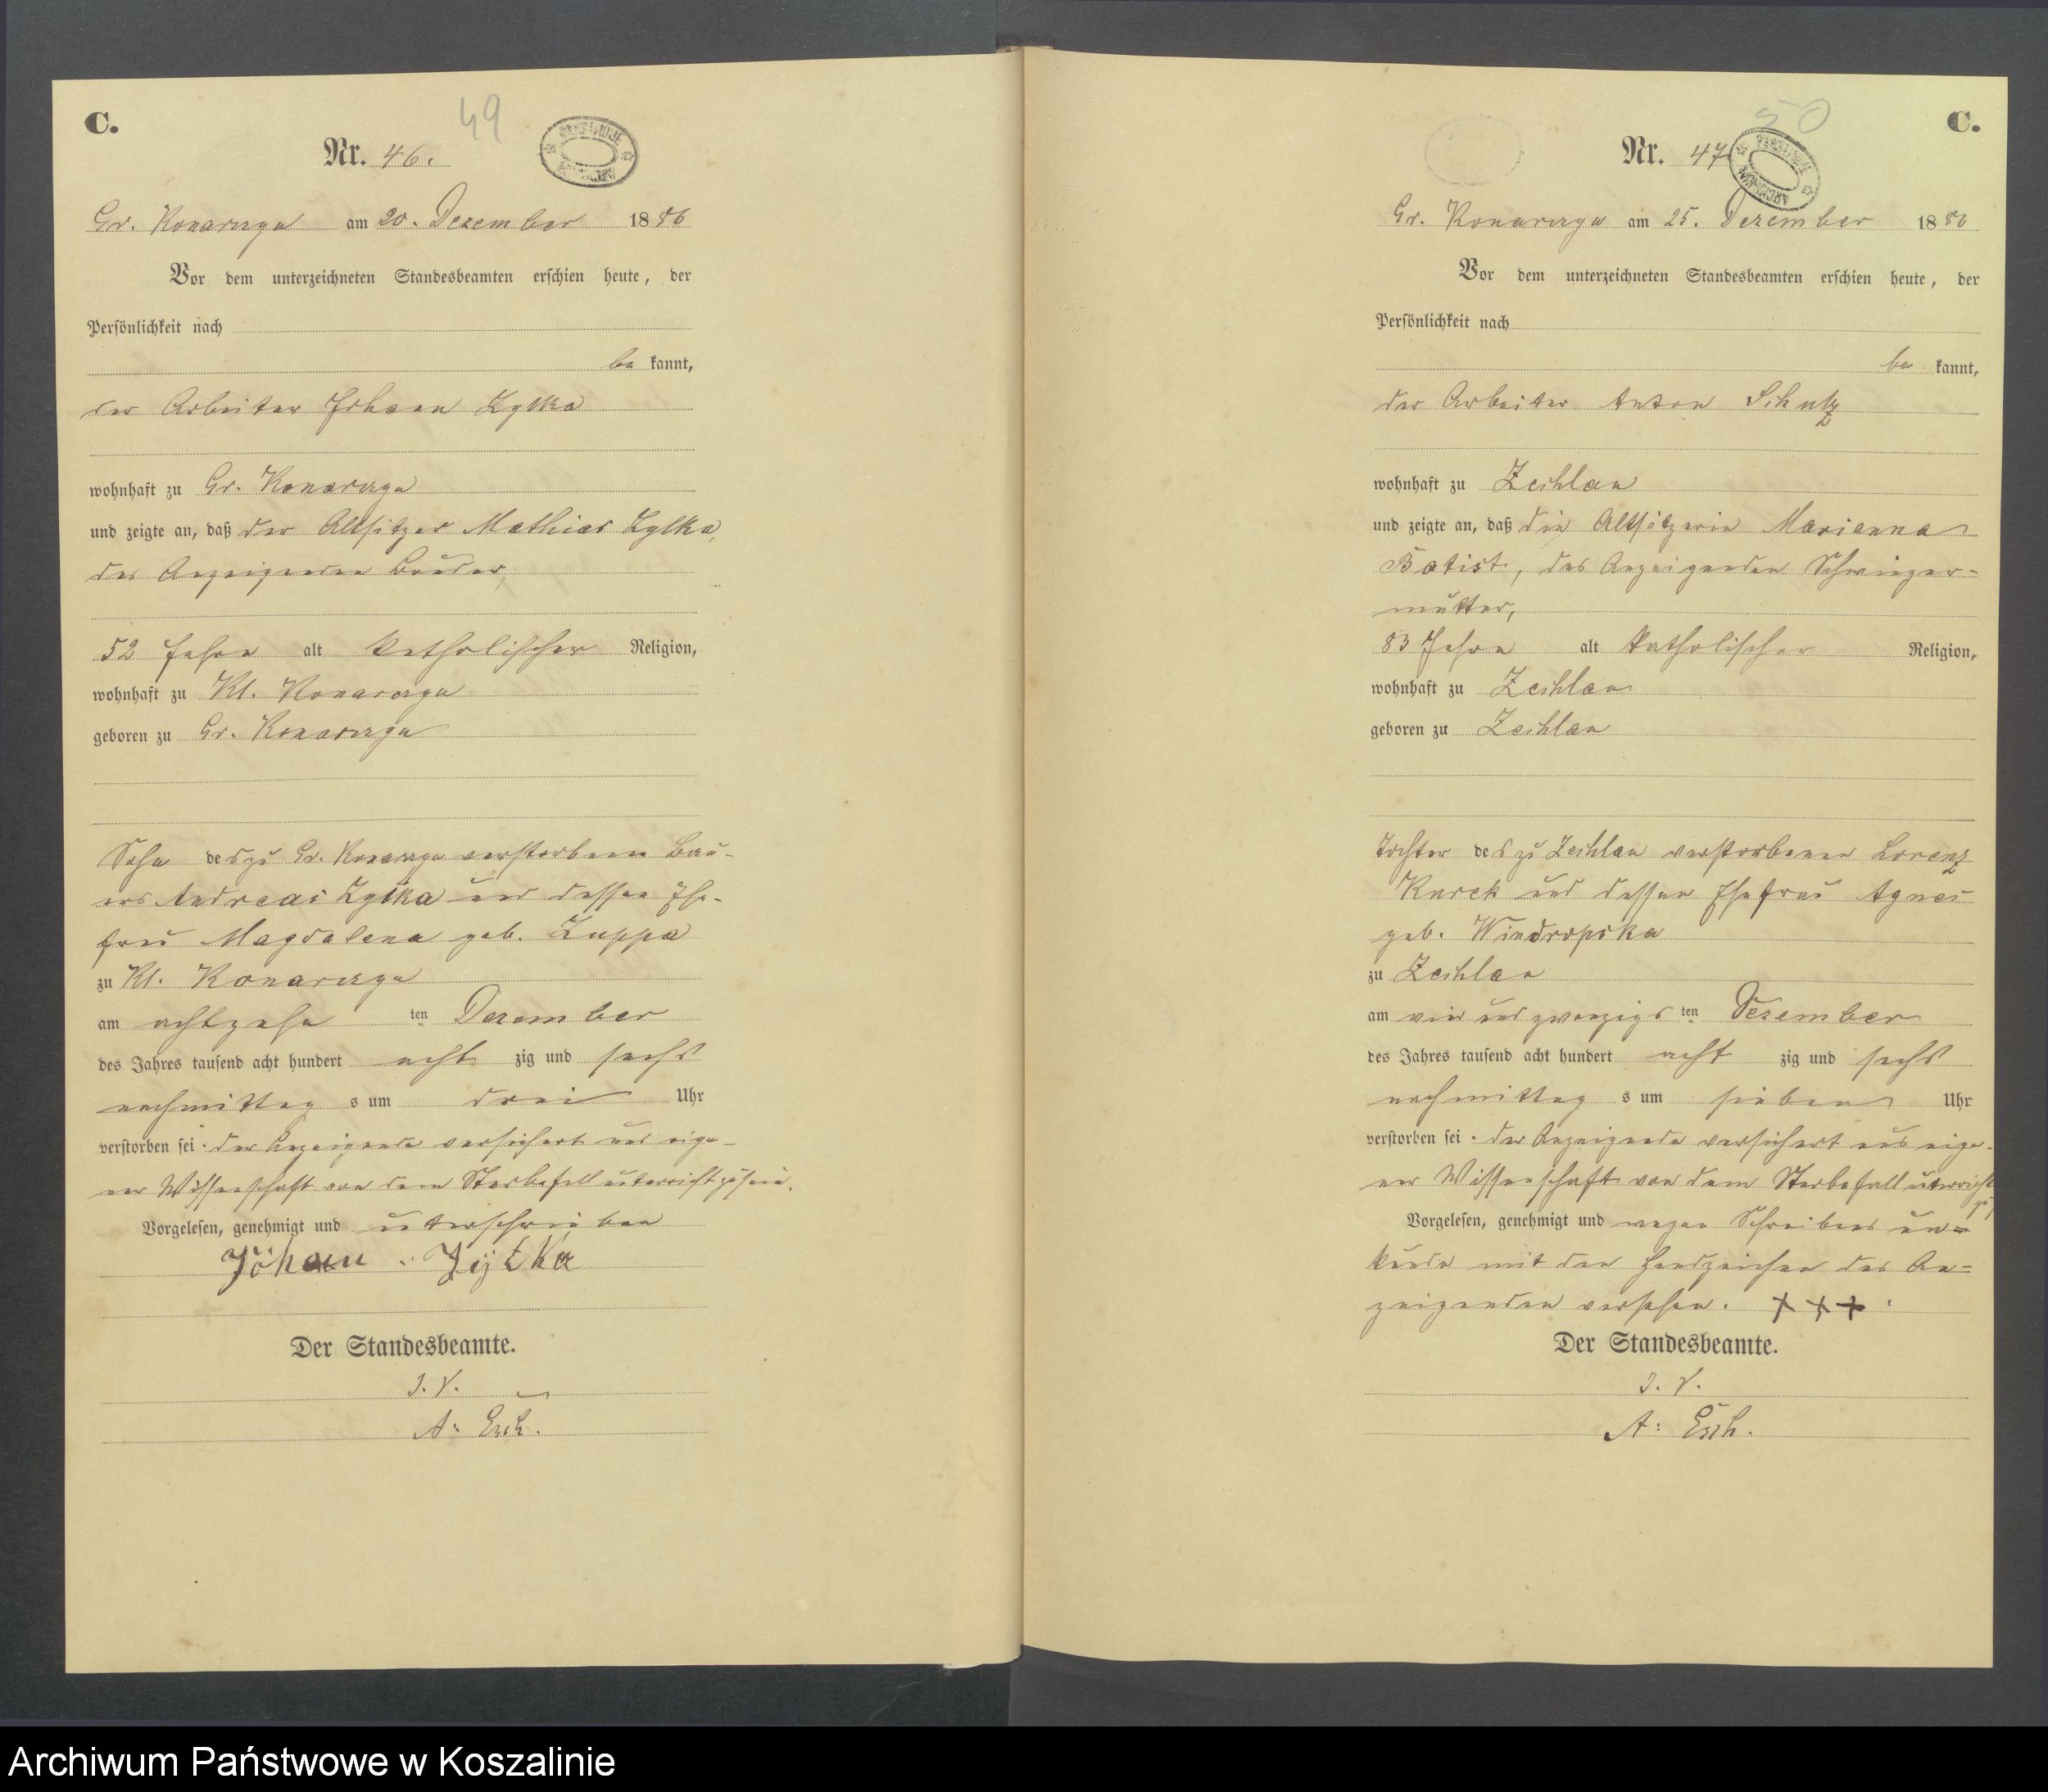 C.
49
Nr. 46.
Gr. Konarczyn am 20. Dezember 1886
Vor dem unterzeichneten Standesbeamten erschien heute, der
Persönlichkeit nach
be kannt,
der Arbeiter Johann Zylka
wohnhaft zu Gr. Konarczyn
und zeigte an, daß der Altsitzer Mathias Zylka,
des Anzeigenden Bruder,
52 Jahre alt katholischer Religion,
wohnhaft zu Kl. Konarczyn
geboren zu Gr. Konarczyn
Sohn des zu Gr. Konarczyn verstorbenen Bau-
ers Andreas Zylka und dessen Ehe-
frau Magdalena geb. Zuppa
zu Kl. Konarczyn
am achtzehn ten Dezember
des Jahres tausend acht hundert acht zig und sechs
nachmittag s um drei Uhr
verstorben sei. der Anzeigende versichert aus eige-
ner Wissenschaft von dem Sterbefall unterrichtet zu sein.
Vorgelesen, genehmigt und unterschrieben
Johann Zytka
Der Standesbeamte.
I. V.
A. Esch.
C.
50
Nr. 47
Gr. Konarczyn am 25. Dezember 1886
Vor dem unterzeichneten Standesbeamten erschien heute, der
Persönlichkeit nach
be kannt,
der Arbeiter Anton Schulz
wohnhaft zu Zechlau
und zeigte an, daß die Altsitzerin Marianna
Batist, des Anzeigenden Schwieger-
mutter,
83 Jahre alt katholischer Religion,
wohnhaft zu Zechlau
geboren zu Zechlau
Tochter des zu Zechlau verstorbenen Lorenz
Knrek und dessen Ehefrau Agnes
geb. Windropska
zu Zechlau
am vier und zwanzigs ten Dezember
des Jahres tausend acht hundert acht zig und sechs
nachmittag s um sieben Uhr
verstorben sei. der Anzeigende versichert aus eige-
ner Wissenschaft von dem Sterbefall unterricht
Vorgelesen, genehmigt und wegen Schreibens un-
kunde mit den Handzeichen des An-
zeigenden versehen. + + +.
Der Standesbeamte.
I. V.
A. Esch.
Archiwum Państwowe w Koszalinie